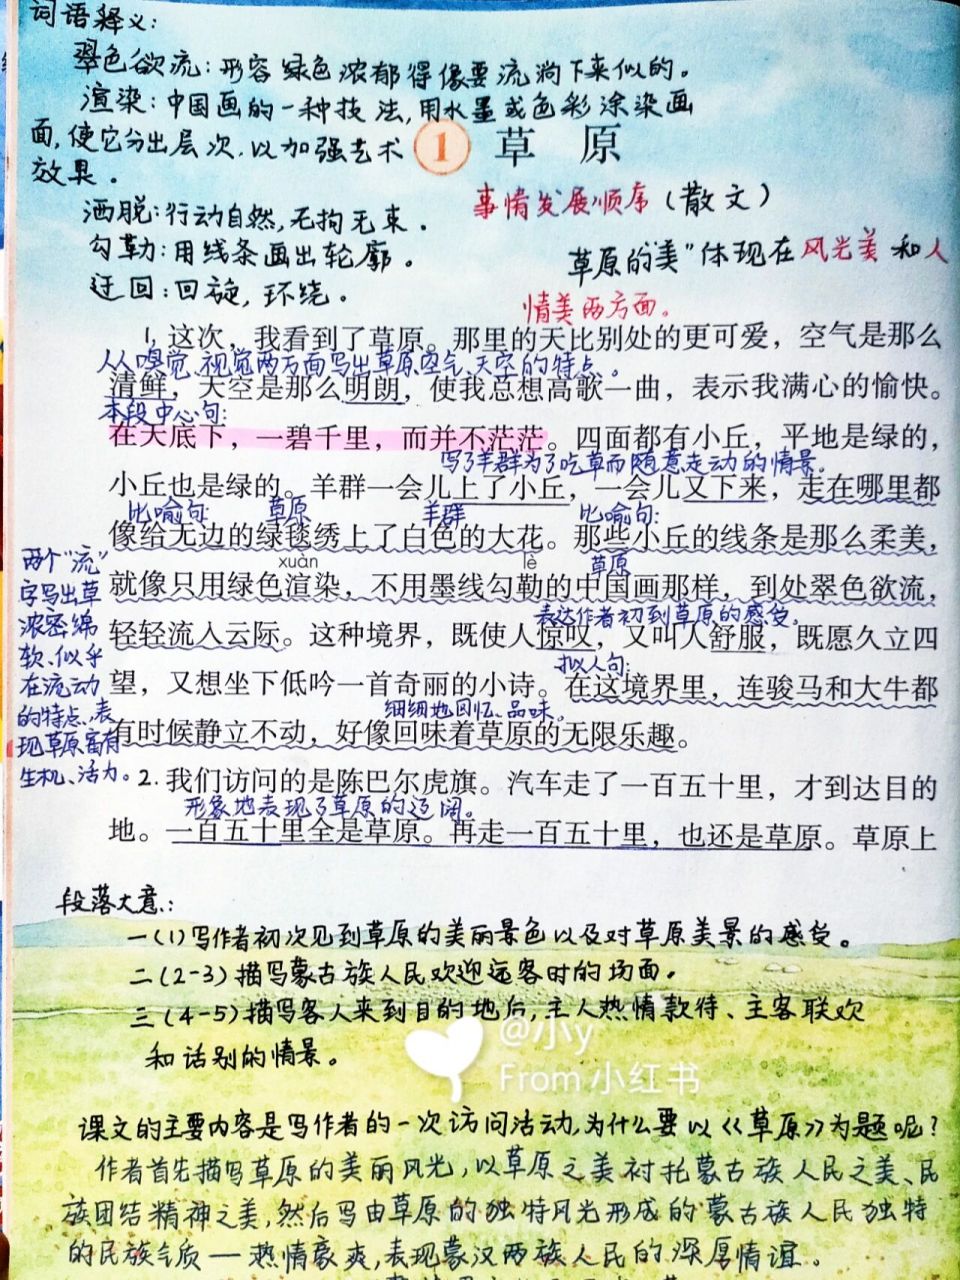 词语释义:
翠色欲流:形容绿色浓郁得像要流淌下来似的。
渲染:中国画的一种技法,用水墨或色彩涂染画
面,使它分出层次,以加强艺术
效果。
1 草原
洒脱:行动自然,无拘无束。
事情发展顺序(散文)
勾勒:用线条画出轮廓。
草原的"美"体现在风光美和人
迂回:回旋,环绕。
情美两方面。
1.这次,我看到了草原。那里的天比别处的更可爱,空气是那么
从嗅觉、视觉两方面写出草原空气、天空的特点。
清鲜,天空是那么明朗,使我总想高歌一曲,表示我满心的愉快。
本段中心句:
在天底下,一碧千里,而并不茫茫。四面都有小丘,平地是绿的,
写了羊群为了吃草而随意走动的情景。
小丘也是绿的。羊群一会儿上了小丘,一会儿又下来,走在哪里都
比喻句: 草原 羊群 比喻句:
像给无边的绿毯绣上了白色的大花。那些小丘的线条是那么柔美,
xuàn lè 草原
就像只用绿色渲染,不用墨线勾勒的中国画那样,到处翠色欲流,
表达作者初到草原的感受。
轻轻流入云际。这种境界,既使人惊叹,又叫人舒服,既愿久立四
拟人句:
望,又想坐下低吟一首奇丽的小诗。在这境界里,连骏马和大牛都
细细地回忆、品味。
有时候静立不动,好像回味着草原的无限乐趣。
两个"流"
字写出草
浓密绵
软、似乎
在流动
的特点、表
现草原富有
生机、活力。
2.我们访问的是陈巴尔虎旗。汽车走了一百五十里,才到达目的
形象地表现了草原的辽阔。
地。一百五十里全是草原。再走一百五十里,也还是草原。草原上
段落大意:
一(1)写作者初次见到草原的美丽景色以及对草原美景的感受。
二(2-3)描写蒙古族人民欢迎远客时的场面。
三(4-5)描写客人来到目的地后,主人热情款待、主客联欢
和话别的情景。
@小y
From 小红书
课文的主要内容是写作者的一次访问活动,为什么要以《草原》为题呢?
作者首先描写草原的美丽风光,以草原之美衬托蒙古族人民之美、民
族团结精神之美,然后写由草原的独特风光形成的蒙古族人民独特
的民族气质—热情豪爽,表现蒙汉两族人民的深厚情谊。